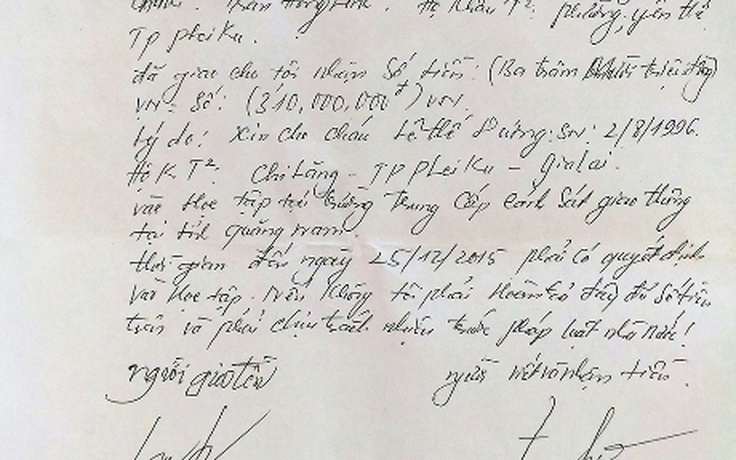 Trần Hồng Linh. Hộ Khẩu T²: phường yên thế
TP pleiKu.
đã giao cho tôi nhận số tiền: (Ba trăm mười triệu đồng)
VN= Số: (310,000,000đ) VN.
Lý do: Xin cho cháu Lê thế Dương: SN: 2/8/1996.
Hộ K T²: Chi Lăng - TP pLeiKu - gialai.
vào Học tập tại trường Trung Cấp cảnh sát giao thông
tại tỉnh quảng nam.
thời gian đến ngày 25/12/2015 phải có quyết định
vào học tập. Nếu không tôi phải Hoàn trả đầy đủ số tiền
trên và phải chịu trách nhiệm trước pháp luật nhà nước!
người giao tiền
người viết và nhận tiền.